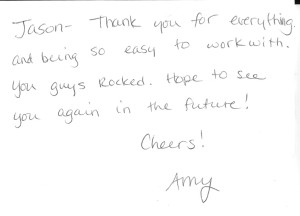 Jason- Thank you for everything.
and being so easy to work with.
You guys Rocked. Hope to see
you again in the future!
Cheers!
Amy